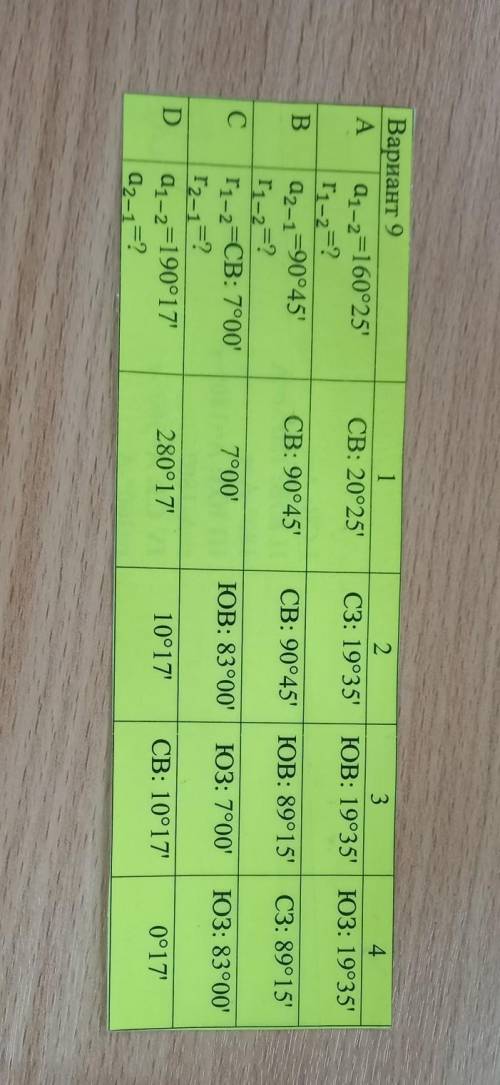 Вариант 9 1 2 3 4
A α₁₋₂=160°25' СВ: 20°25' СЗ: 19°35' ЮВ: 19°35' ЮЗ: 19°35'
r₁₋₂=?
B α₂₋₁=90°45' СВ: 90°45' СВ: 90°45' ЮВ: 89°15' СЗ: 89°15'
r₁₋₂=?
C r₁₋₂=СВ: 7°00' 7°00' ЮВ: 83°00' ЮЗ: 7°00' ЮЗ: 83°00'
r₂₋₁=?
D α₁₋₂=190°17' 280°17' 10°17' СВ: 10°17' 0°17'
α₂₋₁=?